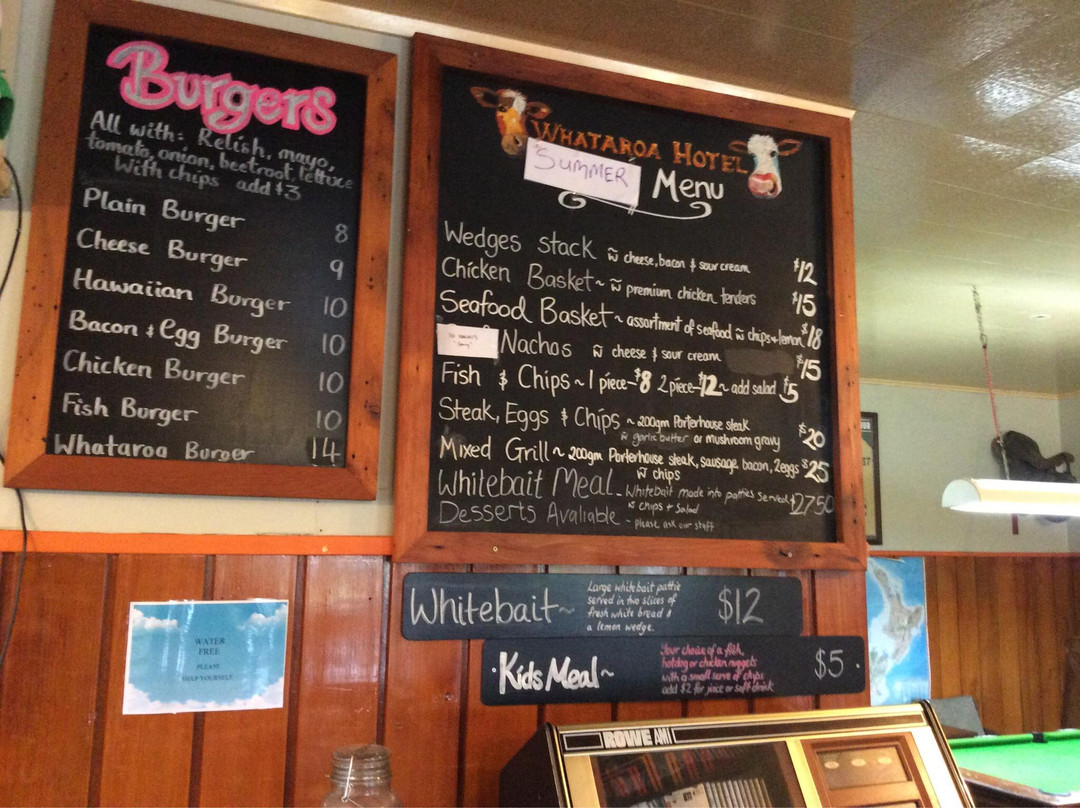 Burgers
All with: Relish, mayo,
tomato, onion, beetroot, lettuce
With chips add $3
Plain Burger 8
Cheese Burger 9
Hawaiian Burger 10
Bacon & Egg Burger 10
Chicken Burger 10
Fish Burger 10
Whataroa Burger 14
WHATAROA HOTEL
SUMMER
Menu
Wedges stack w cheese, bacon & sour cream $12
Chicken Basket ~ w premium chicken tenders $15
Seafood Basket ~ assortment of seafood w chips + lemon $18
Nachos w cheese & sour cream $15
Fish & Chips ~ 1 piece - $8 2 piece - $12 ~ add salad $5
Steak, Eggs & Chips ~ 200gm Porterhouse steak $20
w garlic butter or mushroom gravy
Mixed Grill ~ 200gm Porterhouse steak, sausage, bacon, 2eggs $25
w chips
Whitebait Meal - Whitebait made into patties served $27.50
w chips + Salad
Desserts Avaliable - please ask our staff
Whitebait ~ Large whitebait pattie
served in two slices of
fresh white bread &
a lemon wedge. $12
Kids Meal ~ Your choice of a fish,
hotdog or chicken nuggets
with a small serve of chips
add $2 for juice or soft drink $5
WATER
FREE
PLEASE
HELP YOURSELF
ROWE AMI